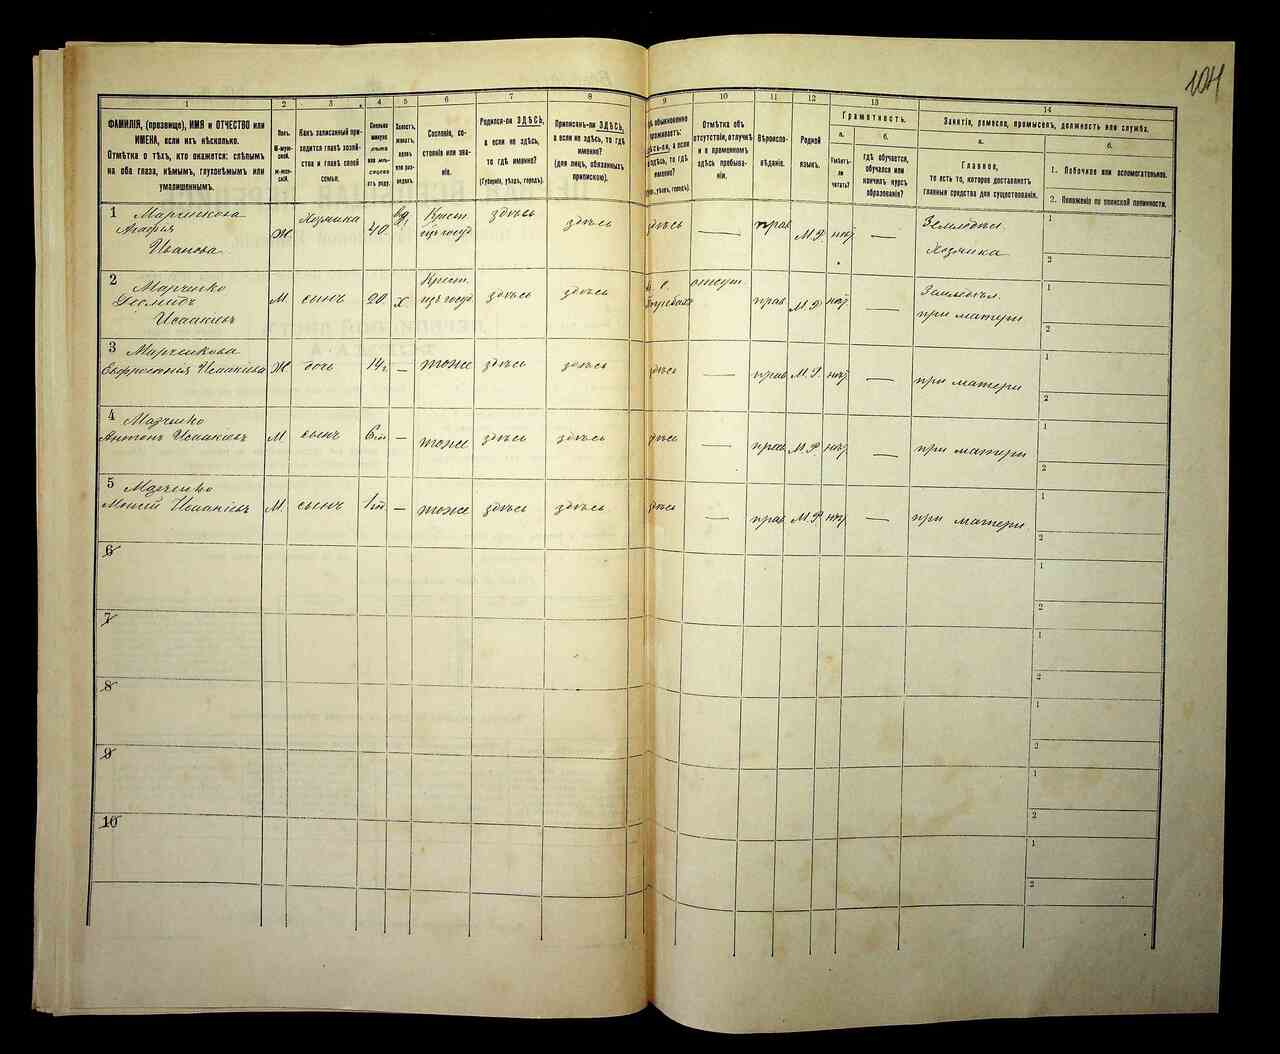 104
1
2
3
4
5
6
7
8
9
10
11
12
13
14
ФАМИЛІЯ, (прозвище), ИМЯ и ОТЧЕСТВО или
ИМЕНА, если ихъ нѣсколько.
Отмѣтка о тѣхъ, кто окажется: слѣпымъ
на оба глаза, нѣмымъ, глухонѣмымъ или
умалишеннымъ.
Полъ.
М-муж-
ской.
Ж-жен-
скій.
Какъ записанный при-
ходится главѣ хозяй-
ства и главѣ своей
семьи.
Сколько
минуло
лѣтъ
или мѣ-
сяцевъ
отъ роду.
Холостъ,
женатъ,
вдовъ
или раз-
веденъ.
Сословіе, со-
стояніе или зва-
ніе.
Родился-ли ЗДѢСЬ,
а если не здѣсь,
то гдѣ именно?
(Губернія, уѣздъ, городъ).
Приписанъ-ли ЗДѢСЬ,
а если не здѣсь, то гдѣ
именно?
(для лицъ, обязанныхъ
припискою).
обыкновенно
проживаетъ:
здѣсь-ли, а если
не здѣсь, то гдѣ
именно?
уѣздъ, городъ).
Отмѣтка объ
отсутствіи, отлучкѣ
и о временномъ
здѣсь пребыва-
ніи.
Вѣроиспо-
вѣданіе.
Родной
языкъ.
Грамотность.
а.
Умѣетъ-
ли
читать?
б.
гдѣ обучается,
обучался или
кончилъ курсъ
образованія?
Занятіе, ремесло, промыселъ, должность или служба.
а.
Главное,
то есть то, которое доставляетъ
главныя средства для существованія.
б.
1. Побочное или вспомогательное.
2. Положеніе по воинской повинности.
1 Марченкова
Агафія
Иванова
Ж
Хозяйка
40
вд.
Крест.
изъ госуд
здѣсь
здѣсь
здѣсь
—
прав
М.Р.
нѣт
—
Земледѣл.
Хозяйка
1
2
2 Марченко
Исаакіевъ
М
сынъ
20
х
Крест.
изъ госуд
здѣсь
здѣсь
отсут.
прав.
М.Р.
нѣт
—
Земледѣл.
при матери
1
2
3 Марченкова
Евфросинія Исаакіева
Ж
дочь
14
—
тоже
здѣсь
здѣсь
здѣсь
—
прав.
М.Р.
нѣт
—
при матери
1
2
4 Марченко
Антонъ Исаакіевъ
М
сынъ
6
—
тоже
здѣсь
здѣсь
здѣсь
—
прав.
М.Р.
нѣт
—
при матери
1
2
5 Марченко
Моисей Исаакіевъ
М.
сынъ
1
—
тоже
здѣсь
здѣсь
здѣсь
—
прав.
М.Р.
нѣт
—
при матери
1
2
6
1
2
7
1
2
8
1
2
9
1
2
10
1
2